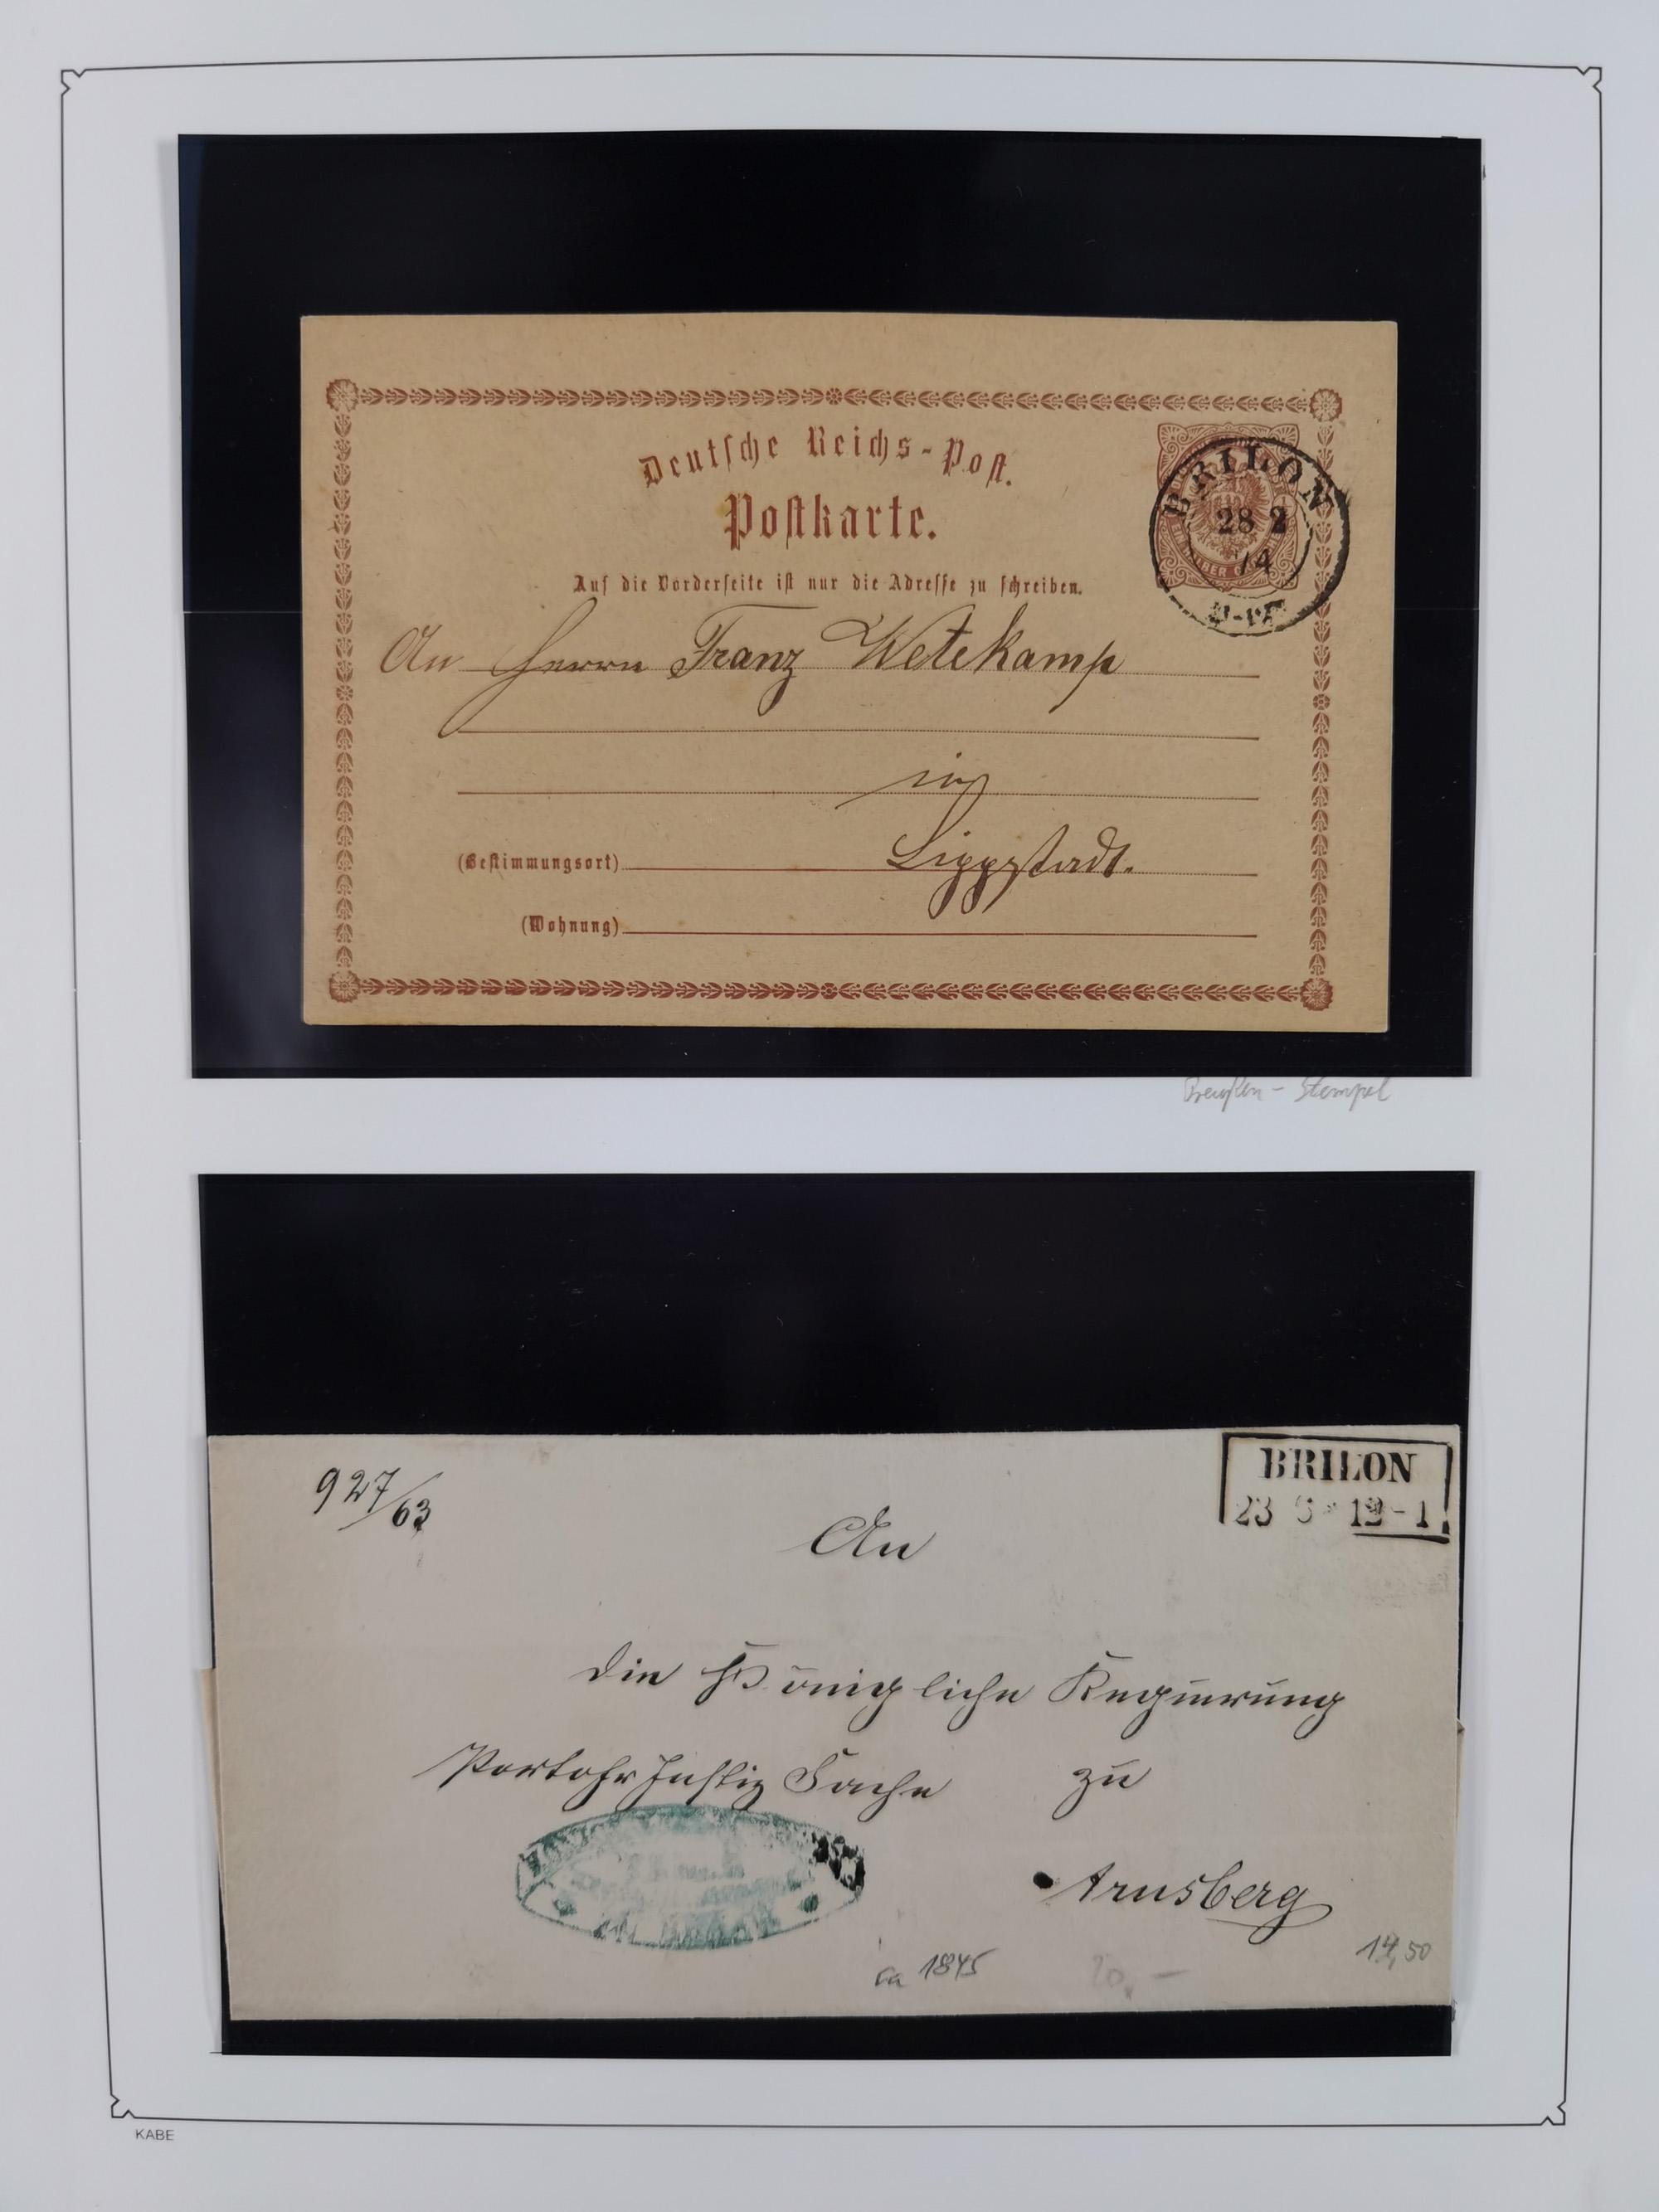 Deutsche Reichs-Post.
Postkarte.
Auf die Vorderseite ist nur die Adresse zu schreiben.
BRILON
28 2
74
An Herrn Franz Wetekamp
in
(Bestimmungsort) Lippstadt.
(Wohnung)
Preußen - Stempel
927/63
BRILON
23 12-1
An
die Königliche Regierung
Justiz Sache zu
Arnsberg
ca 1845
20,-
14,50
KABE